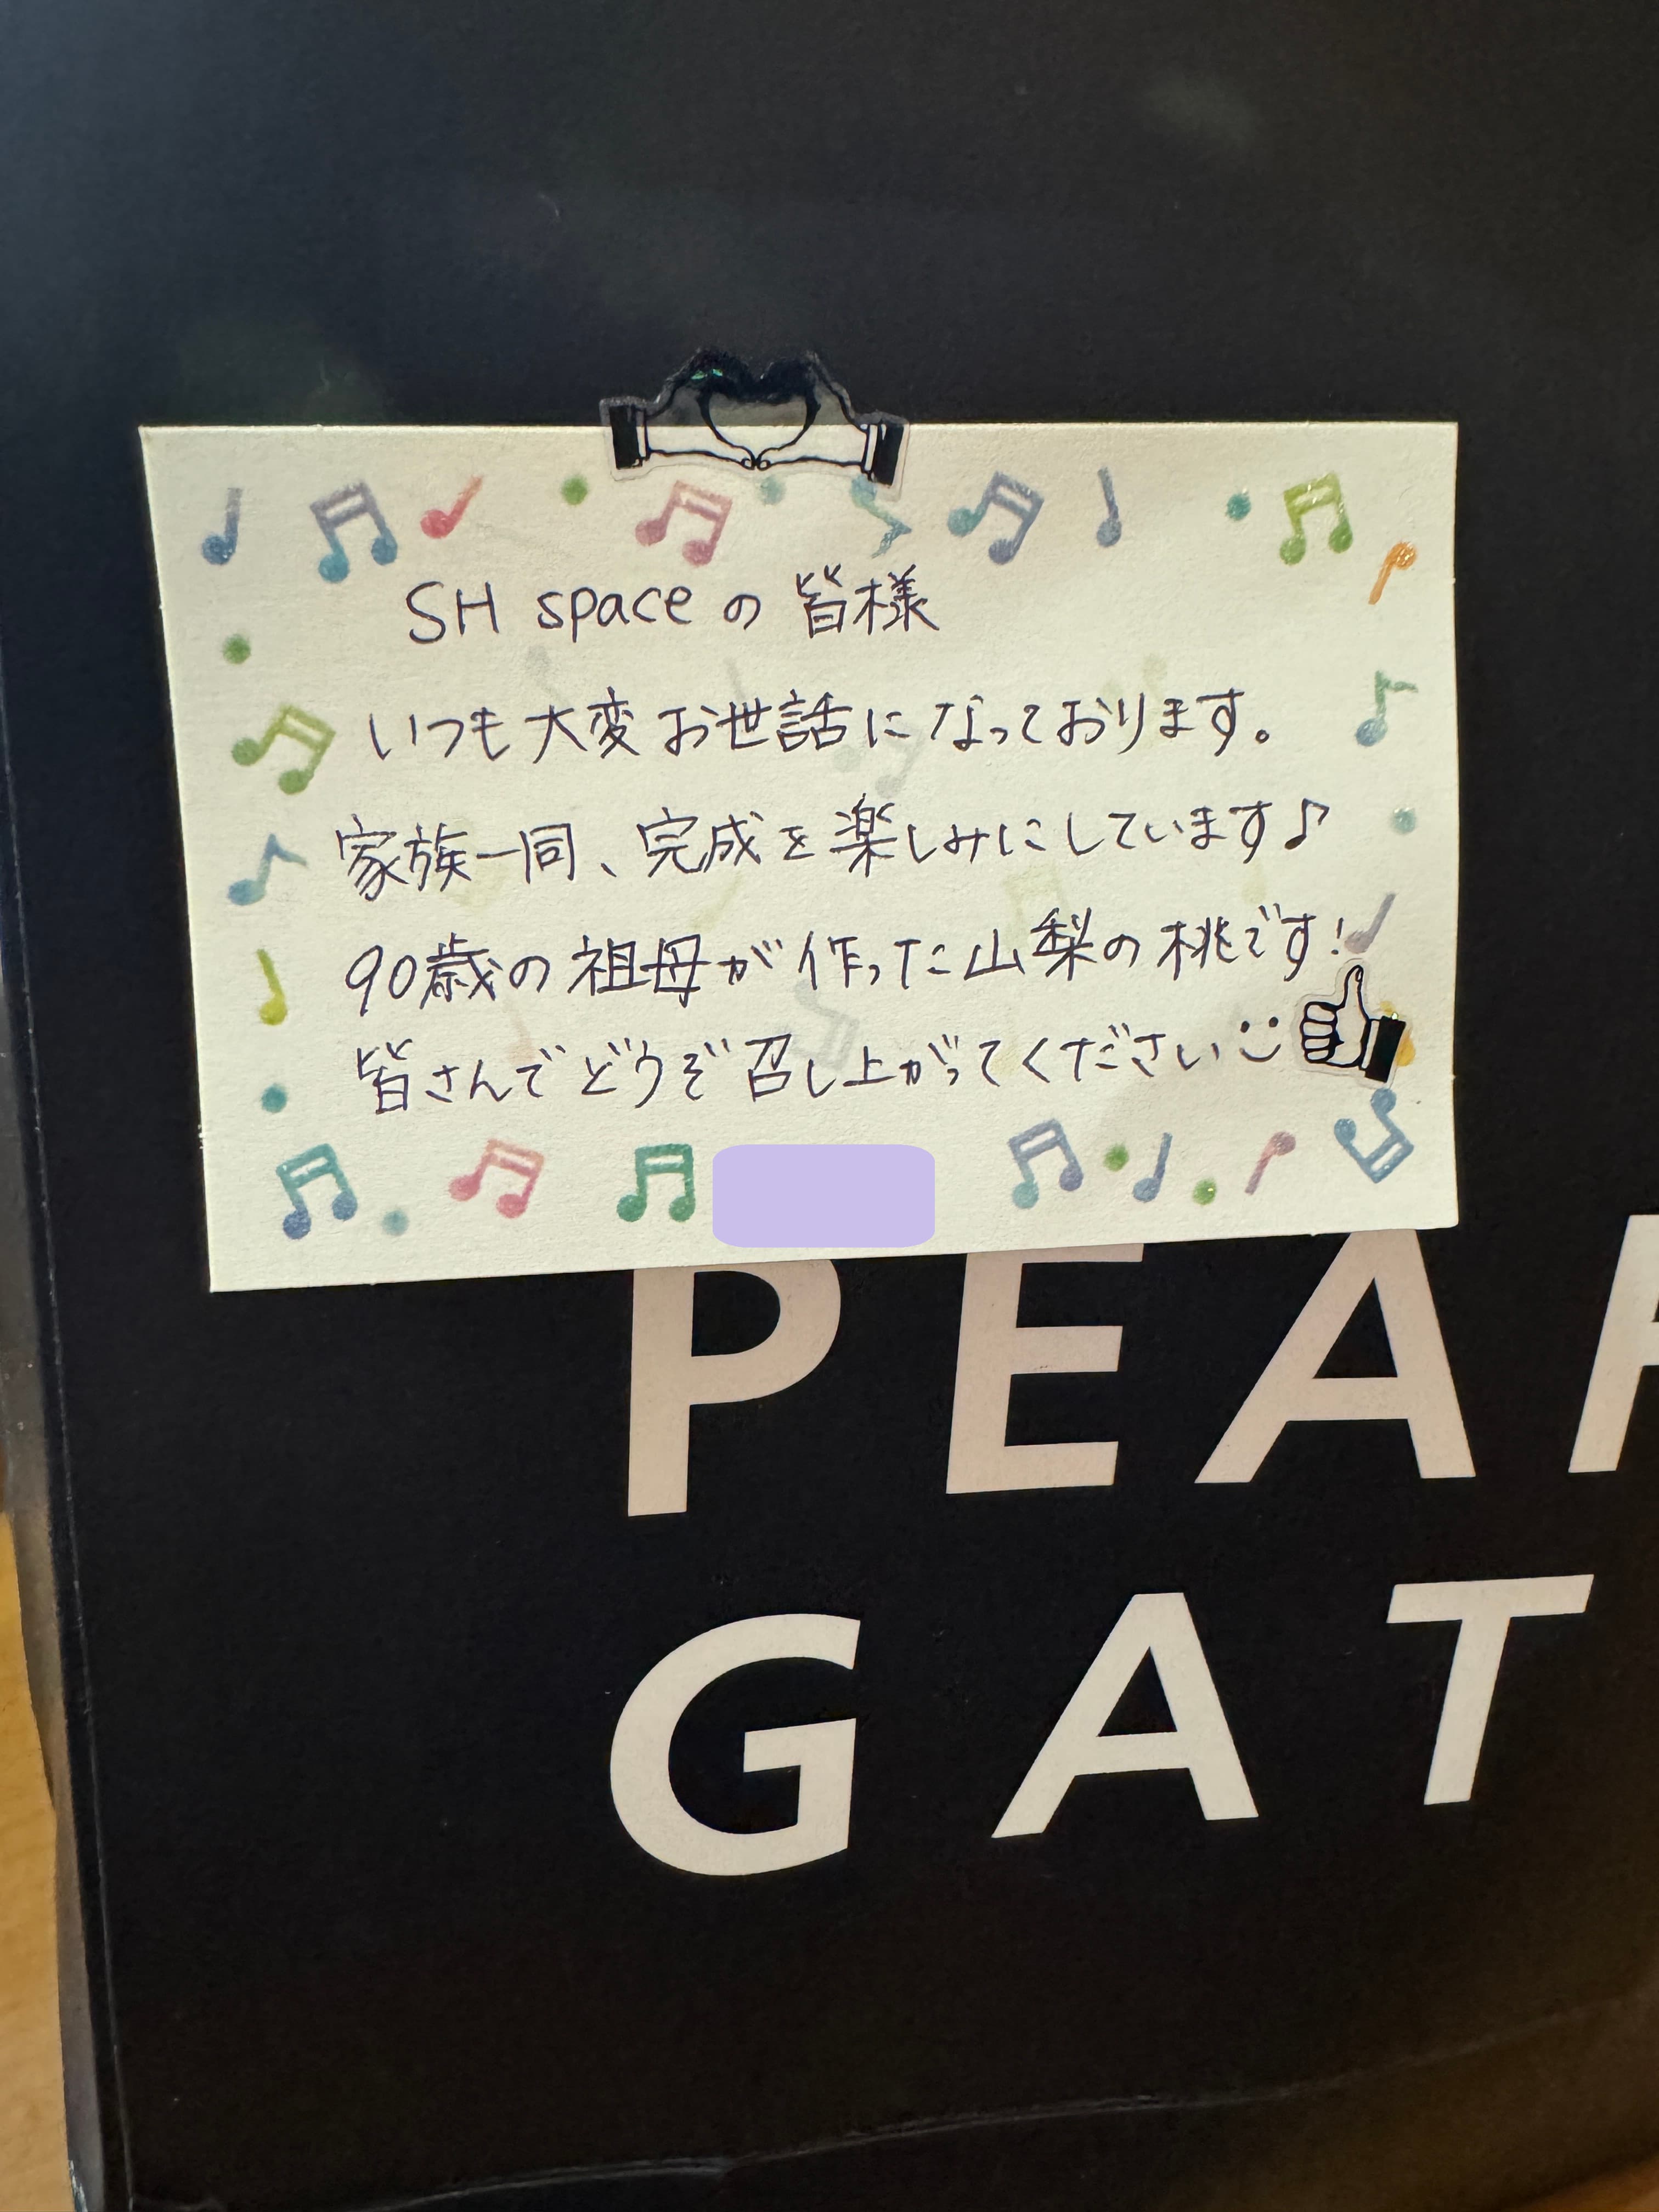 SH spaceの皆様
いつも大変お世話になっております。
家族一同、完成を楽しみにしています♪
90歳の祖母が作った山梨の桃です!
皆さんでどうぞ召し上がってください
PEA
GAT